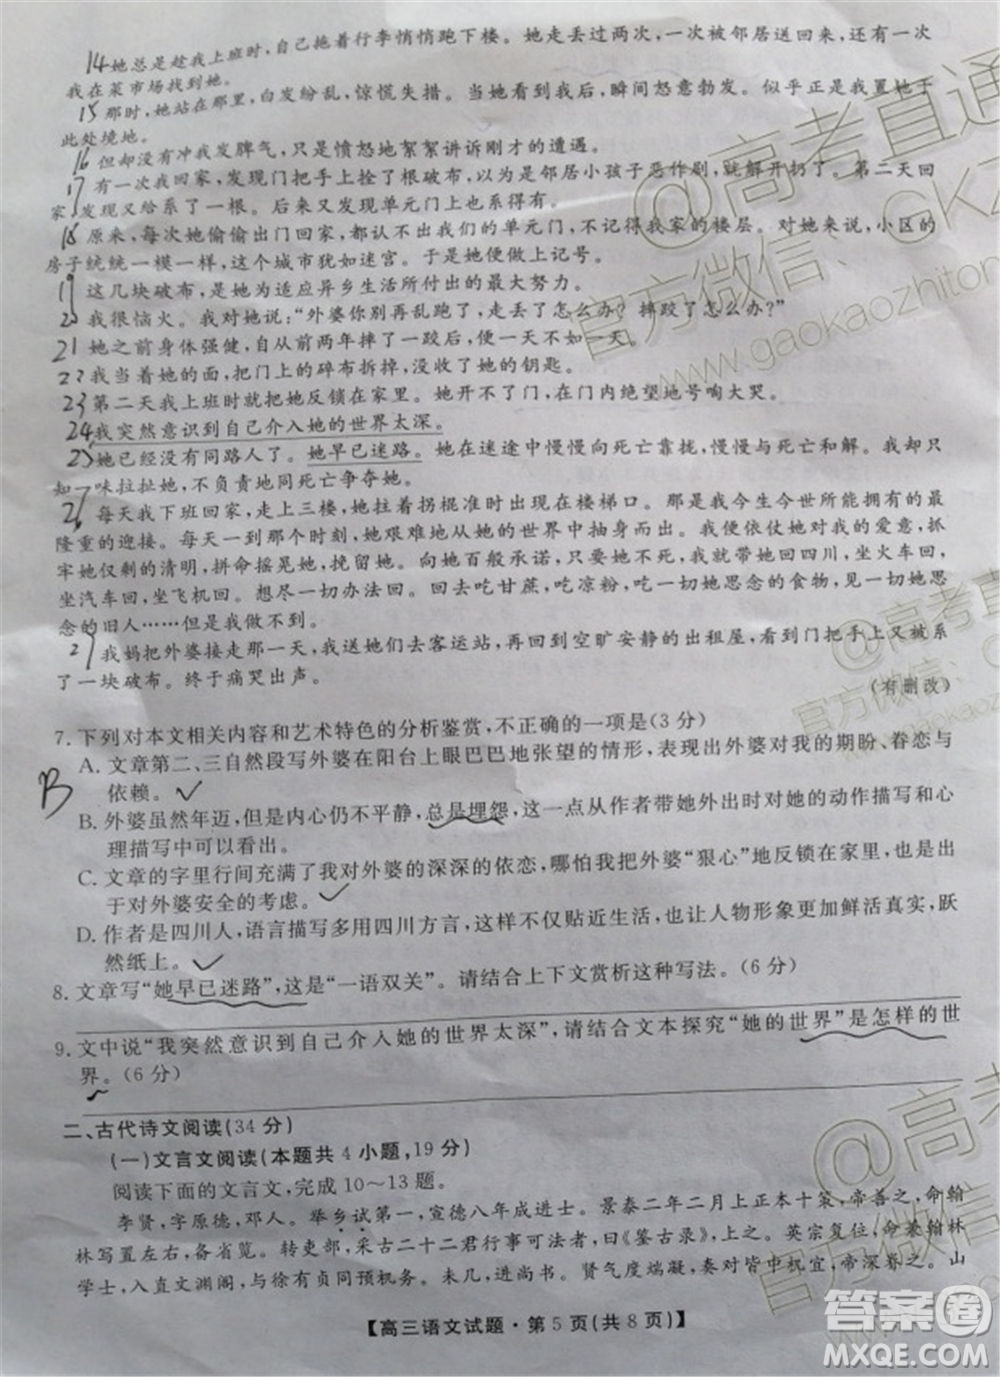 14她总是趁我上班时,自己拖着行李悄悄跑下楼。她走丢过两次,一次被邻居送回来,还有一次
我在菜市场找到她。
15那时,她站在那里,白发纷乱,惊慌失措。当她看到我后,瞬间怒意勃发。似乎正是我置她于
此处境地。
16但却没有冲我发脾气,只是愤怒地絮絮讲诉刚才的遭遇。
17有一次我回家,发现门把手上拴了根破布,以为是邻居小孩子恶作剧,就解开扔了。第二天回
家,发现又给系了一根。后来又发现单元门上也有。
18原来,每次她偷偷出门回家,都不认得我们的单元门,不记得我家的楼层。对她来说,小区的
房子统统一模一样,这个城市犹如迷宫。于是她便做上记号。
19这几块破布,是她为适应异乡生活所付出的最大努力。
20我很恼火。我对她说:“外婆你别再乱跑了,走丢了怎么办?摔跤了怎么办?”
21她之前身体强健,自从前两年摔了一跤后,便一天不如一天。
22我当着她的面,把门上的碎布拆掉,没收了她的钥匙。
23第二天我上班时就把她反锁在家里。她开不了门,在门内绝望地号啕大哭。
24我突然意识到自己介入她的世界太深。
25她已经没有同路人了。她早已迷路。她在迷途中慢慢向死亡靠拢,慢慢与死亡和解。而我却只
知一味拉扯她,不负责地同死亡争夺她。
26每天我下班回家,走上三楼,她拄着拐棍准时出现在楼梯口。那是我今生今世所能拥有的最
隆重的迎接。每天一到那个时刻,她艰难地从她的世界中抽身而出。我便依仗她对我的爱意,抓
牢她仅剩的清明,拼命摇晃她,挽留她。我向她百般承诺,只要她不死,我就带她回四川,坐火车回,
坐汽车回,坐飞机回。想尽一切办法回去。回去吃甘蔗,吃凉粉,吃一切她思念的食物,见一切她思
念的旧人……但是我做不到。
27我妈把外婆接走那一天,我送她们去客运站,再回到空旷安静的出租屋,看到门把手上又被系
了一块破布。终于痛哭出声。
(有删改)
7.下列对本文相关内容和艺术特色的分析鉴赏,不正确的一项是(3分)
B
A.文章第二、三自然段写外婆在阳台上眼巴巴地张望的情形,表现出外婆对我的期盼、眷恋与
依赖。
B.外婆虽然年迈,但是内心仍不平静,总是埋怨,这一点从作者带她外出时对她的动作描写和心
理描写中可以看出。
C.文章的字里行间充满我对外婆的深深的依恋,哪怕我把外婆“狠心”地反锁在家里,也是出
于对外婆安全的考虑。
D.作者是四川人,语言描写多用四川方言,这样不仅贴近生活,也让人物形象更加鲜活真实,跃
然纸上。
8.文章写“她早已迷路”,这是“一语双关”。请结合上下文赏析这种写法。(6分)
9.文中说“我突然意识到自己介入她的世界太深”,请结合文本探究“她的世界”是怎样的世
界。(6分)
二、古代诗文阅读(34分)
(一)文言文阅读(本题共4小题,19分)
阅读下面的文言文,完成10~13题。
李贤,字原德,邓人。举乡试第一,宣德八年成进士。景泰二年二月上正本十策,帝善之,命翰
林写置左右,备省览。转吏部,采古二十二君行事可法者,曰《鉴古录》,上之。英宗复位,命兼翰林
学士,入直文渊阁,与徐有贞同预机务。未几,进尚书。贤气度端凝,奏对皆中机宜,帝深眷之。山
【高三语文试题·第5页(共8页)】
@高考直通
官方微信
www.gaokaozhiton
答案圈
MXQE.COM